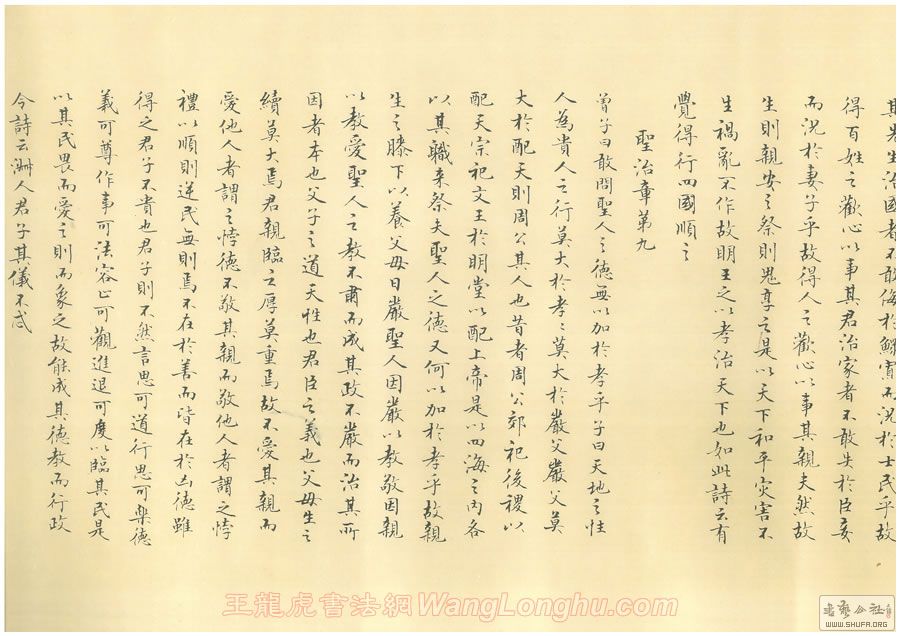 其先生治國者不敢侮於鰥寡而況於士民乎故
得百姓之歡心以事其君治家者不敢失於臣妾
而況於妻子乎故得人之歡心以事其親夫然故
生則親安之祭則鬼享之是以天下和平灾害不
生禍亂不作故明王之以孝治天下也如此詩云有
覺得行四國順之
聖治章第九
曾子曰敢問聖人之德無以加於孝乎子曰天地之性
人為貴人之行莫大於孝〻莫大於嚴父嚴父莫
大於配天則周公其人也昔者周公郊祀後稷以
配天宗祀文王於明堂以配上帝是以四海之內各
以其職来祭夫聖人之德又何以加於孝乎故親
生之膝下以養父母日嚴聖人因嚴以教敬因親
以教愛聖人之教不肅而成其政不嚴而治其所
因者本也父子之道天性也君臣之義也父母生之
續莫大焉君親臨之厚莫重焉故不愛其親而
愛他人者謂之悖德不敬其親而敬他人者謂之悖
禮以順則逆民無則焉不在於善而皆在於凶德雖
得之君子不貴也君子則不然言思可道行思可樂德
義可尊作事可法容止可觀進退可度以臨其民是
以其民畏而愛之則而象之故能成其德教而行政
令詩云淑人君子其儀不忒
王龍虎書法網WangLonghu.com
WWW.SHUFA.ORG